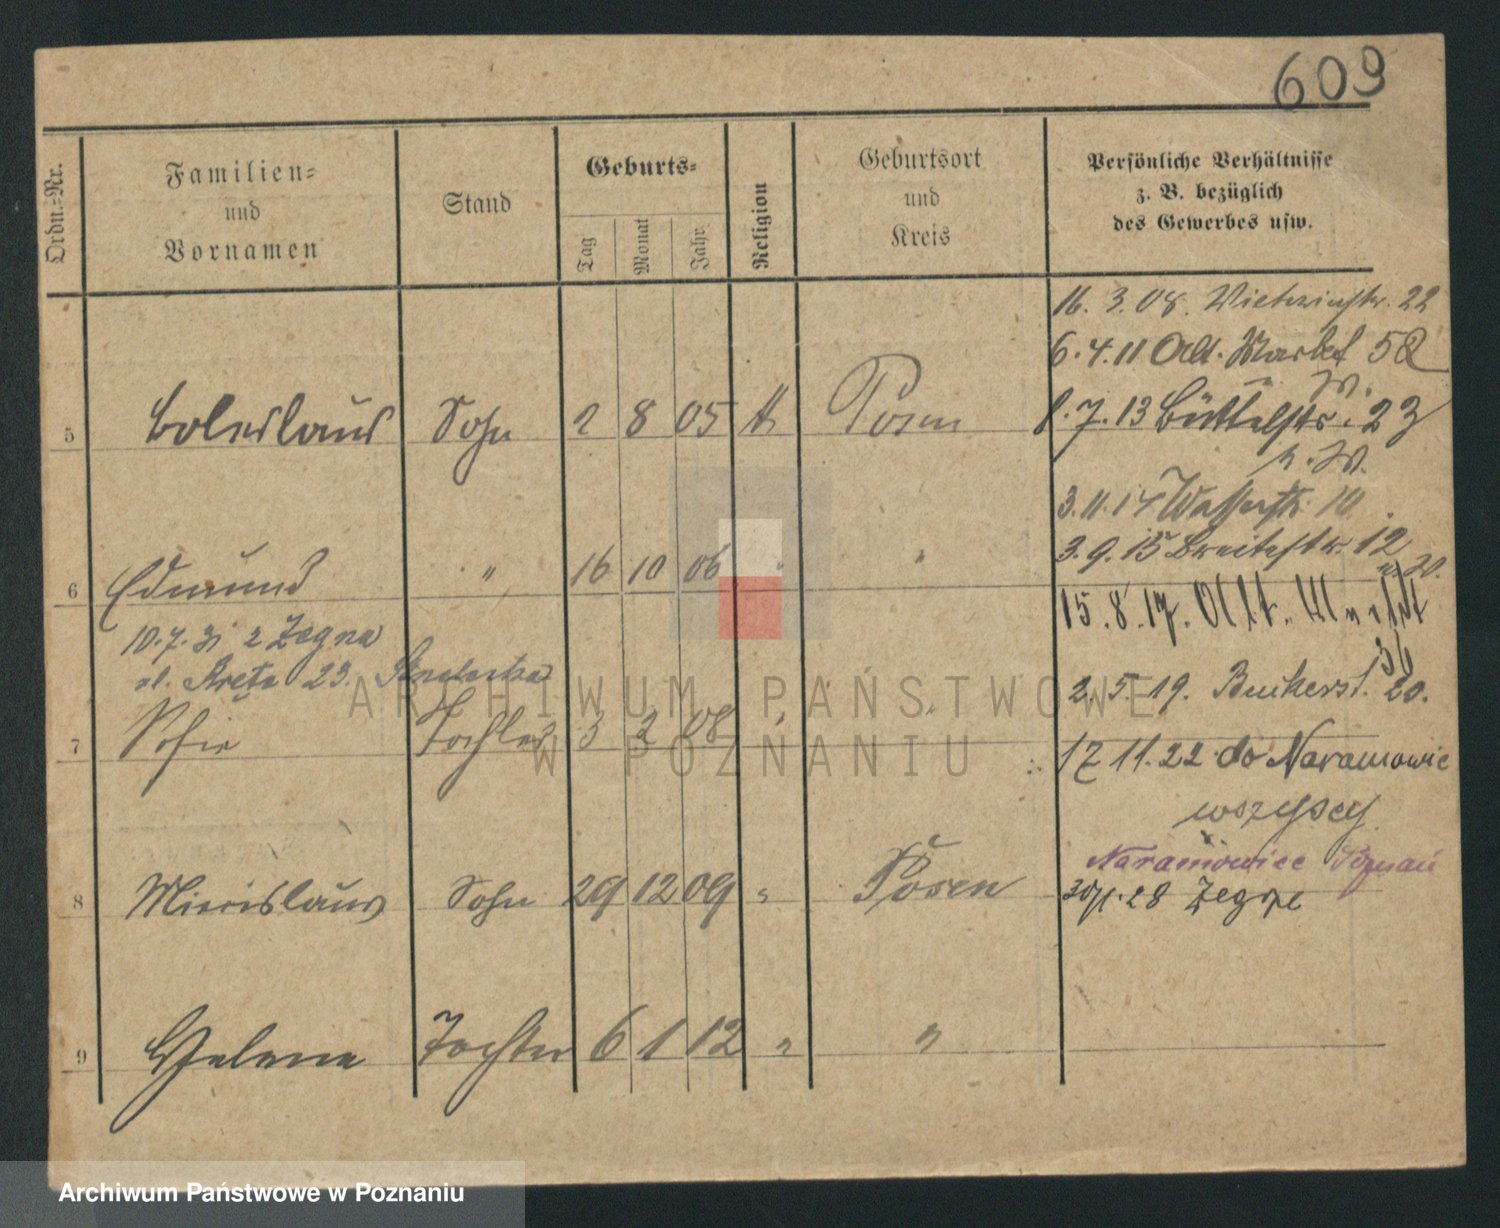 609
Ordn.-Nr.
Familien-
und
Vornamen
Stand
Geburts-
Tag
Monat
Jahr
Religion
Geburtsort
und
Kreis
Persönliche Verhältnisse
z. B. bezüglich
des Gewerbes usw.
16. 3. 08. 22
6. 4. 11 Alt. Markt 52
W.
5 Boleslaus Sohn 2 8 05 k Posen 8. 7. 13 Büttelstr. 23
h. W.
3. 11. 14 Wasserstr. 10
3. 9. 15 Breitestr. 12
6 Edmund " 16 10 06 " "
15. 8. 17. Alt. Markt
36
10. 7. 31 z Żegna
ul. Kręta 23.
2. 5. 19. Bukerst. 20.
7 Sofie Tochter 3 2 08 " "
17 11. 22 do Naramowic
wszyscy
Naramowice Poznań
8 Miecislaus Sohn 29 12 09 " Posen 28 Żegrze
9 Helene Tochter 6 1 12 " "
ARCHIWUM PAŃSTWOWE
W POZNANIU
Archiwum Państwowe w Poznaniu